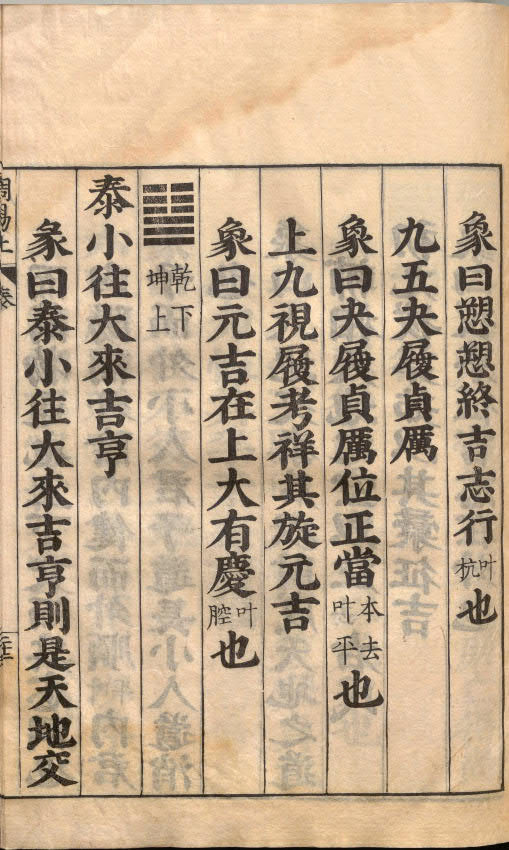 象曰愬愬終吉志行叶杭也
九五夬履貞厲
象曰夬履貞厲位正當本去叶平也
上九視履考祥其旋元吉
象曰元吉在上大有慶叶腔也
䷊乾下坤上
泰小往大來吉亨
彖曰泰小往大來吉亨則是天地交
周易上
泰